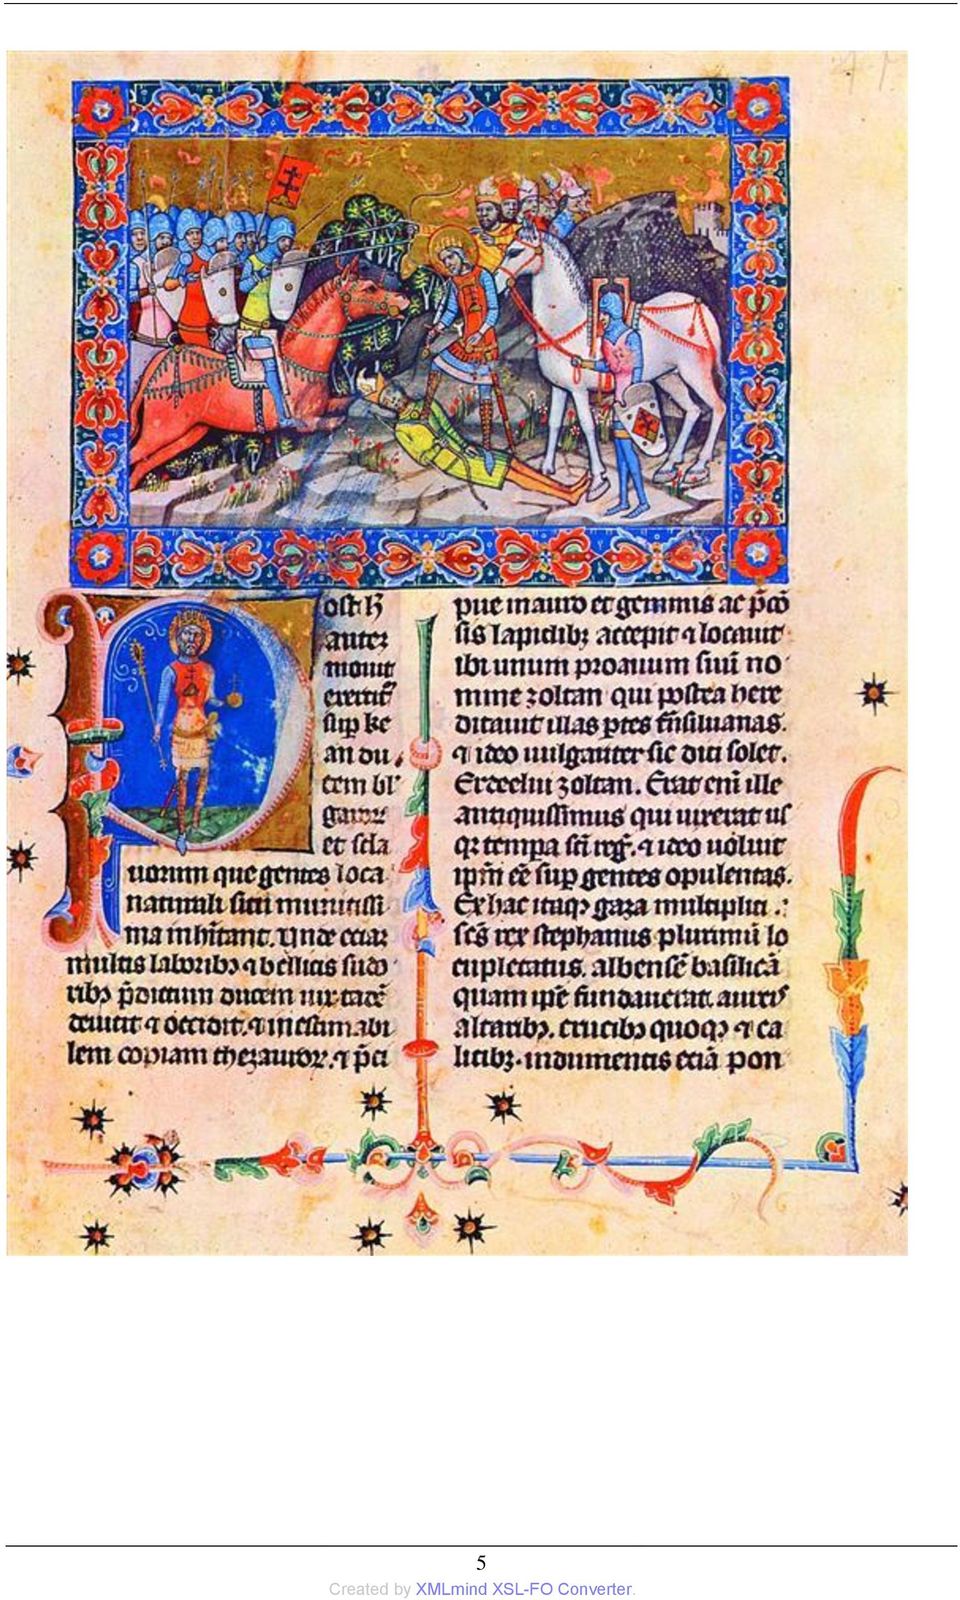 ost hͦ
autez
mouit
exercitū
sup̱ ke
an du
cem bl'
garoꝝ
et scla
uorum que gentes loca
naturali situ munitissi
ma inhītant. Unde eciaꝫ
multis laboribꝫ ⁊ bellicis sudo
ribꝫ p̄dictum ducem uix tadē
deuicit ⁊ occidit. ⁊ inestimabi
lem copiam thezauroꝝ. ⁊ p̄ci
pue in auro et gemmis ac p̄cō
sis lapidibꝫ accepit ⁊ locauit
ibi unum proauum suū no
mine zoltan qui postea here
ditauit illas ꝑtes trās̄iluanas.
⁊ ideo uulgariter sic dici solet.
Erdeelui zoltan. Erat enī ille
antiquissimus qui uixerat us
qꝫ tempa sc̄i reḡ. ⁊ ideo uoluit
ip̄m eē sup̱ gentes opulentas.
Ex hac itaqꝫ gaza multiplici .
sc̄s rex stephanus plurimū lo
cupletatus. albensē basilicā
quam ip̄e fundauerat. aureis
altaribꝫ. crucibꝫ quoqꝫ ⁊ ca
licibꝫ. indumentis eciā pon
5
Created by XMLmind XSL-FO Converter.